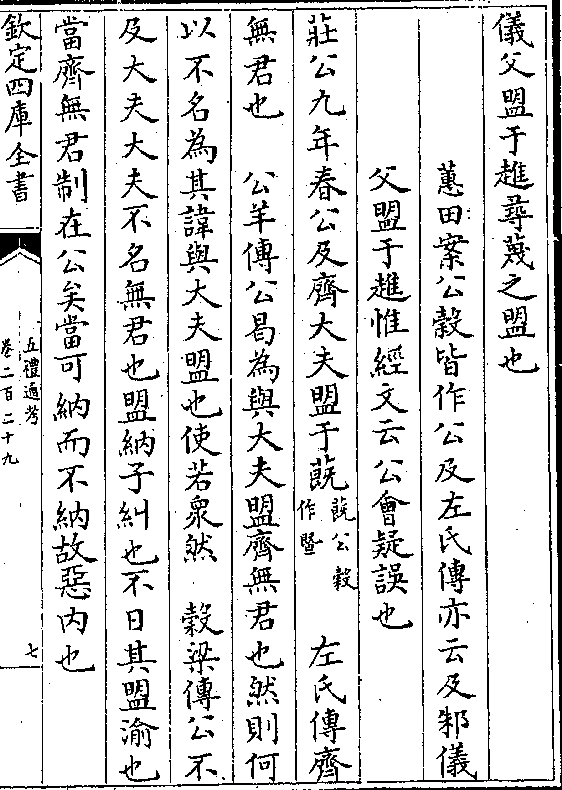 儀父盟于趡尋蔑之盟也
蕙田案公穀皆作公及左氏傳亦云及邾儀
父盟于趡惟經文云公會疑誤也
莊公九年春公及齊大夫盟于蔇蔇公穀作暨 左氏傳齊
無君也 公羊傳公曷為與大夫盟齊無君也然則何
以不名為其諱與大夫盟也使若衆然 穀梁傳公不
及大夫大夫不名無君也盟納子糾也不日其盟渝也
當齊無君制在公矣當可納而不納故惡内也
欽定四庫全書
五禮通考
卷二百二十九
七